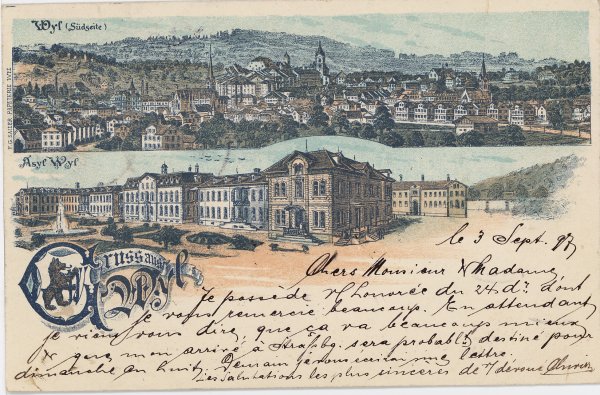 Wyl (Südseite)
F. G. BAUER PAPETERIE WYL
Asyl Wyl
Gruss aus
Wyl.
le 3 Sept. 97
Chers Monsieur & Madame,
Je possède l'honorée du 24 d. dont
je vous remercie beaucoup. En attendant
je viens vous dire que ça va beaucoup mieux
& que mon arrivé à Strassbg. sera probabl. destiné pour
dimanche en huit. Demain je vous écrirai une lettre.
Les salutations les plus sincères de v. dévoué